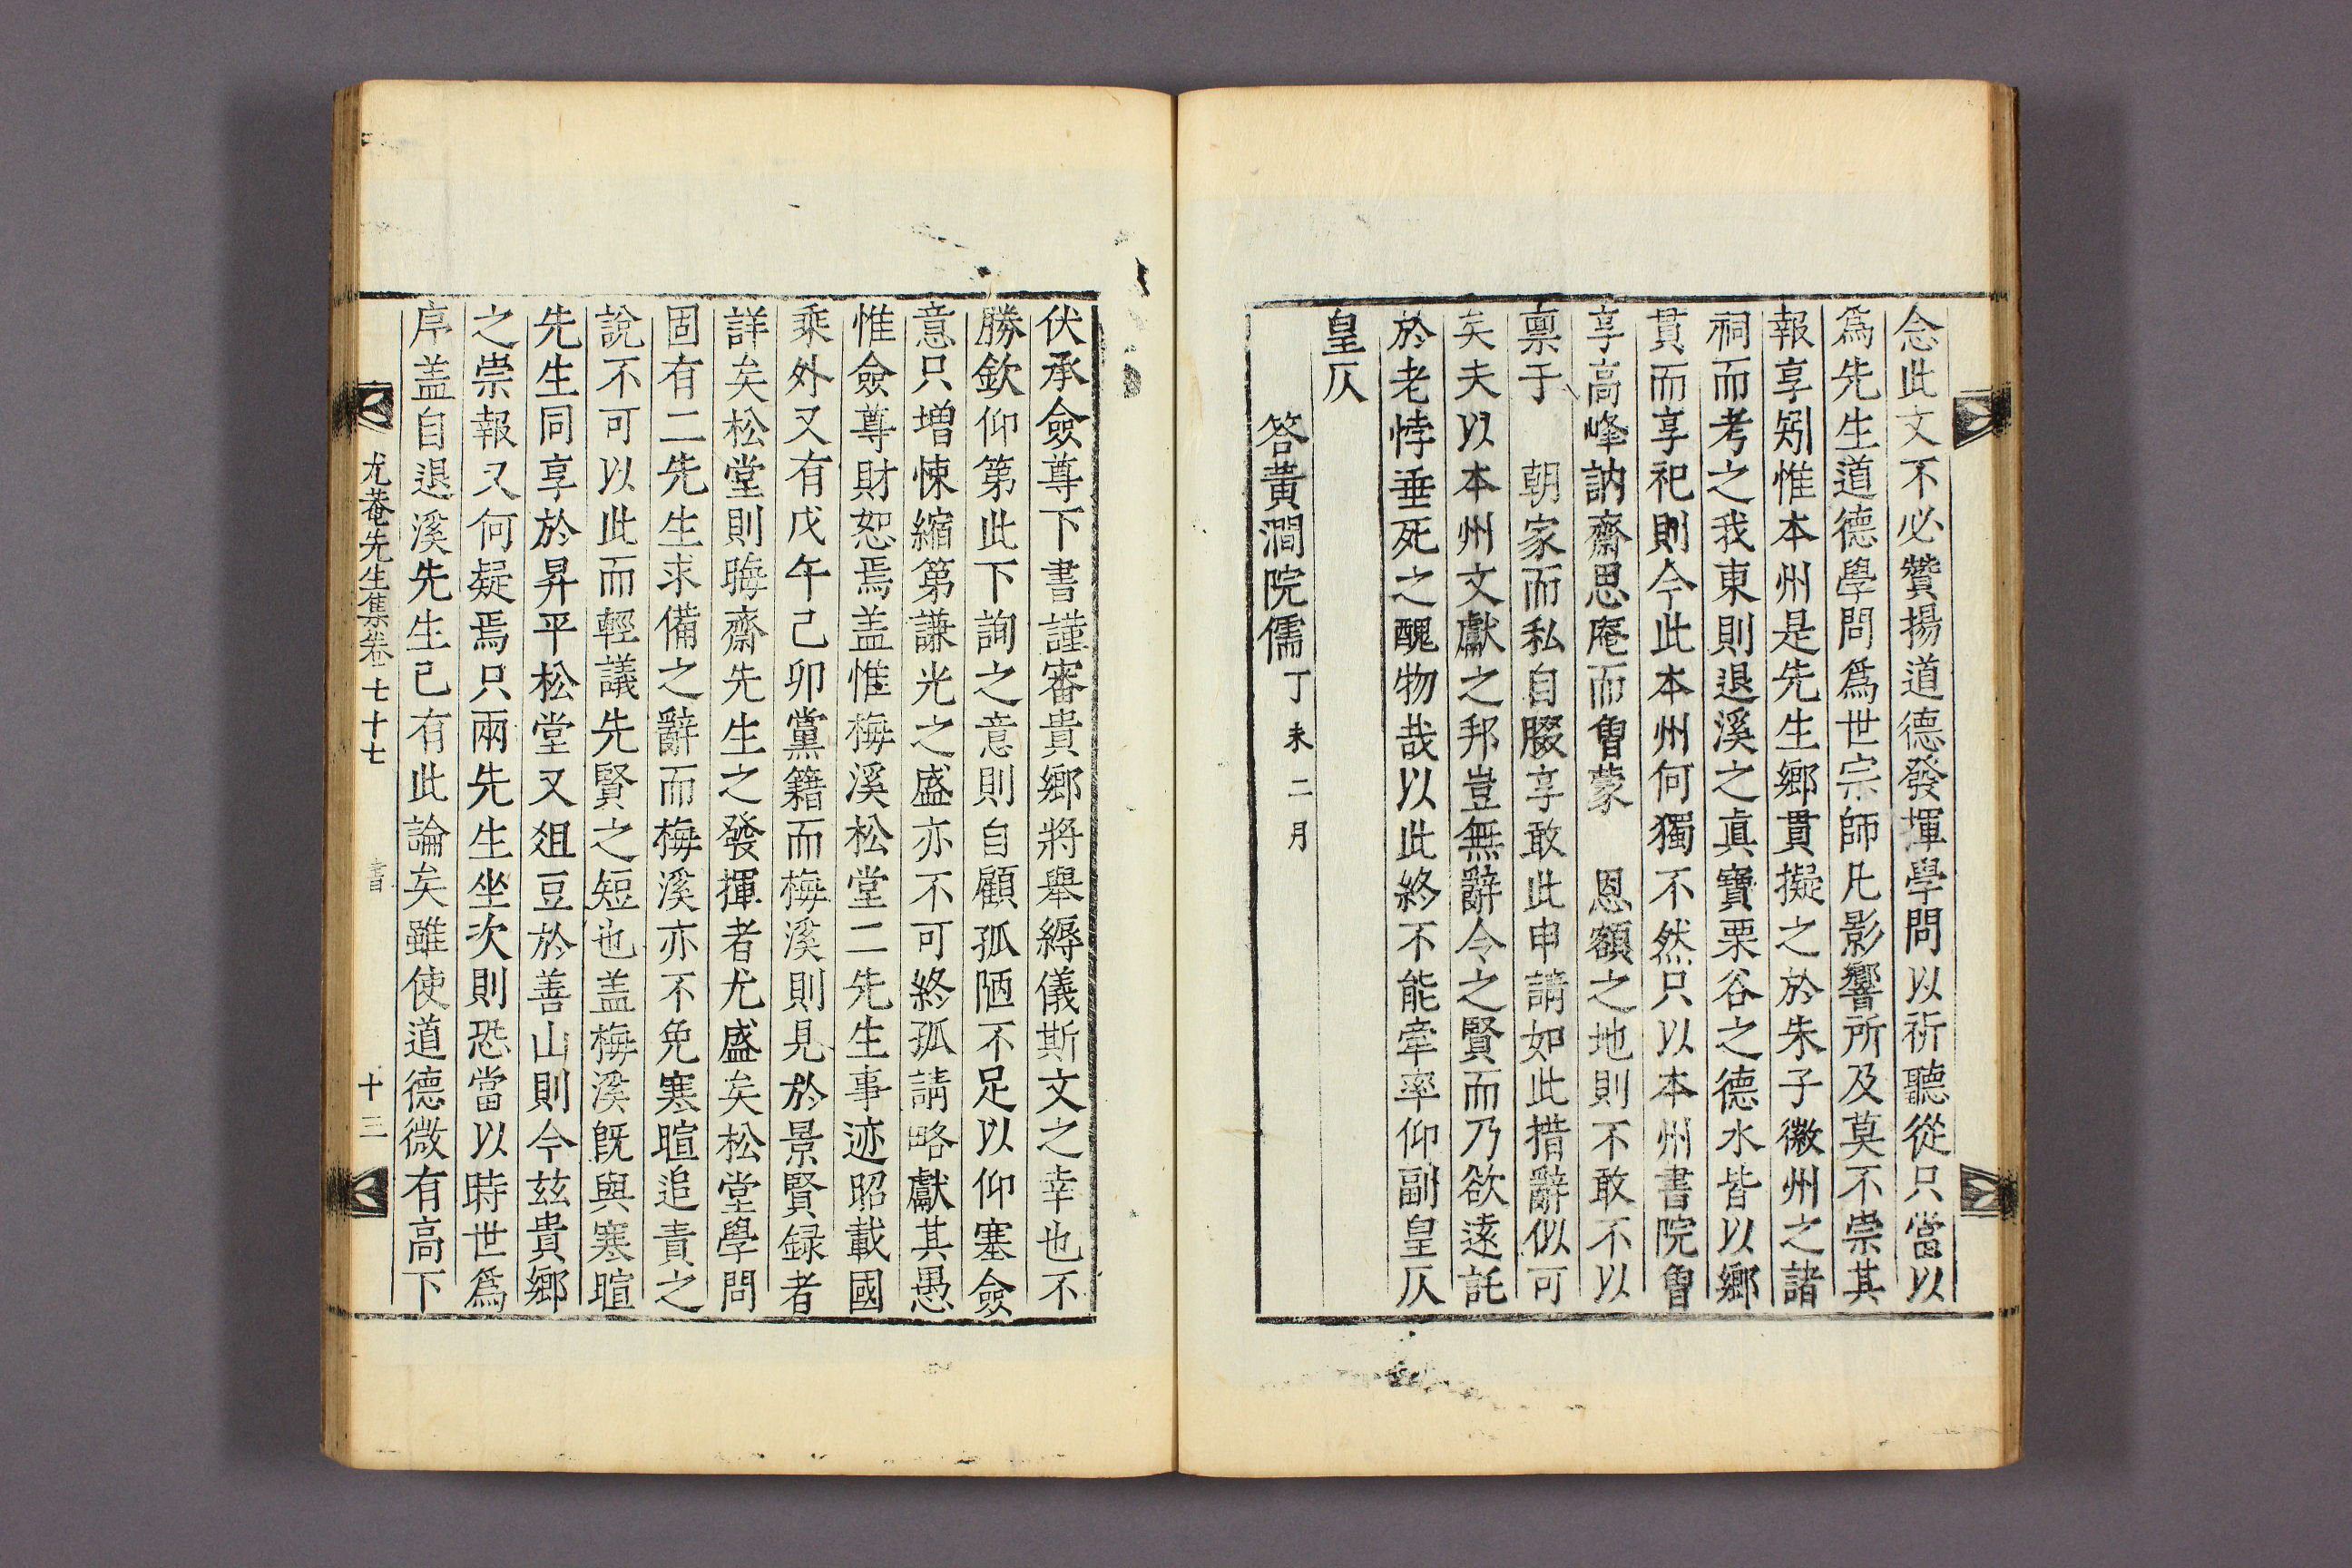 念此文不必贊揚道德發揮學問以祈聽從只當以
爲先生道德學問爲世宗師凡影響所及莫不崇其
報享矧惟本州是先生鄉貫擬之於朱子徽州之諸
祠而考之我東則退溪之眞寶栗谷之德水皆以鄉
貫而享祀則今此本州何獨不然只以本州書院曾
享高峰訥齋思庵而曾蒙 恩額之地則不敢不以
禀于 朝家而私自腏享敢此申請如此措辭似可
矣夫以本州文獻之邦豈無辭令之賢而乃欲遠託
於老悖垂死之醜物哉以此終不能牽率仰副皇仄
皇仄
答黃澗院儒丁未二月
伏承僉尊下書謹審貴鄉將舉縟儀斯文之幸也不
勝欽仰第此下詢之意則自顧孤陋不足以仰塞僉
意只增悚縮第謙光之盛亦不可終孤請略獻其愚
惟僉尊財恕焉盖惟梅溪松堂二先生事迹昭載國
乘外又有戊午己卯黨籍而梅溪則見於景賢録者
詳矣松堂則晦齋先生之發揮者尤盛矣松堂學問
固有二先生求備之辭而梅溪亦不免寒暄追責之
說不可以此而輕議先賢之短也盖梅溪旣與寒暄
先生同享於昇平松堂又俎豆於善山則今玆貴鄉
之崇報又何疑焉只兩先生坐次則恐當以時世爲
序盖自退溪先生已有此論矣雖使道德微有高下
尤菴先生集卷七十七 書 十三